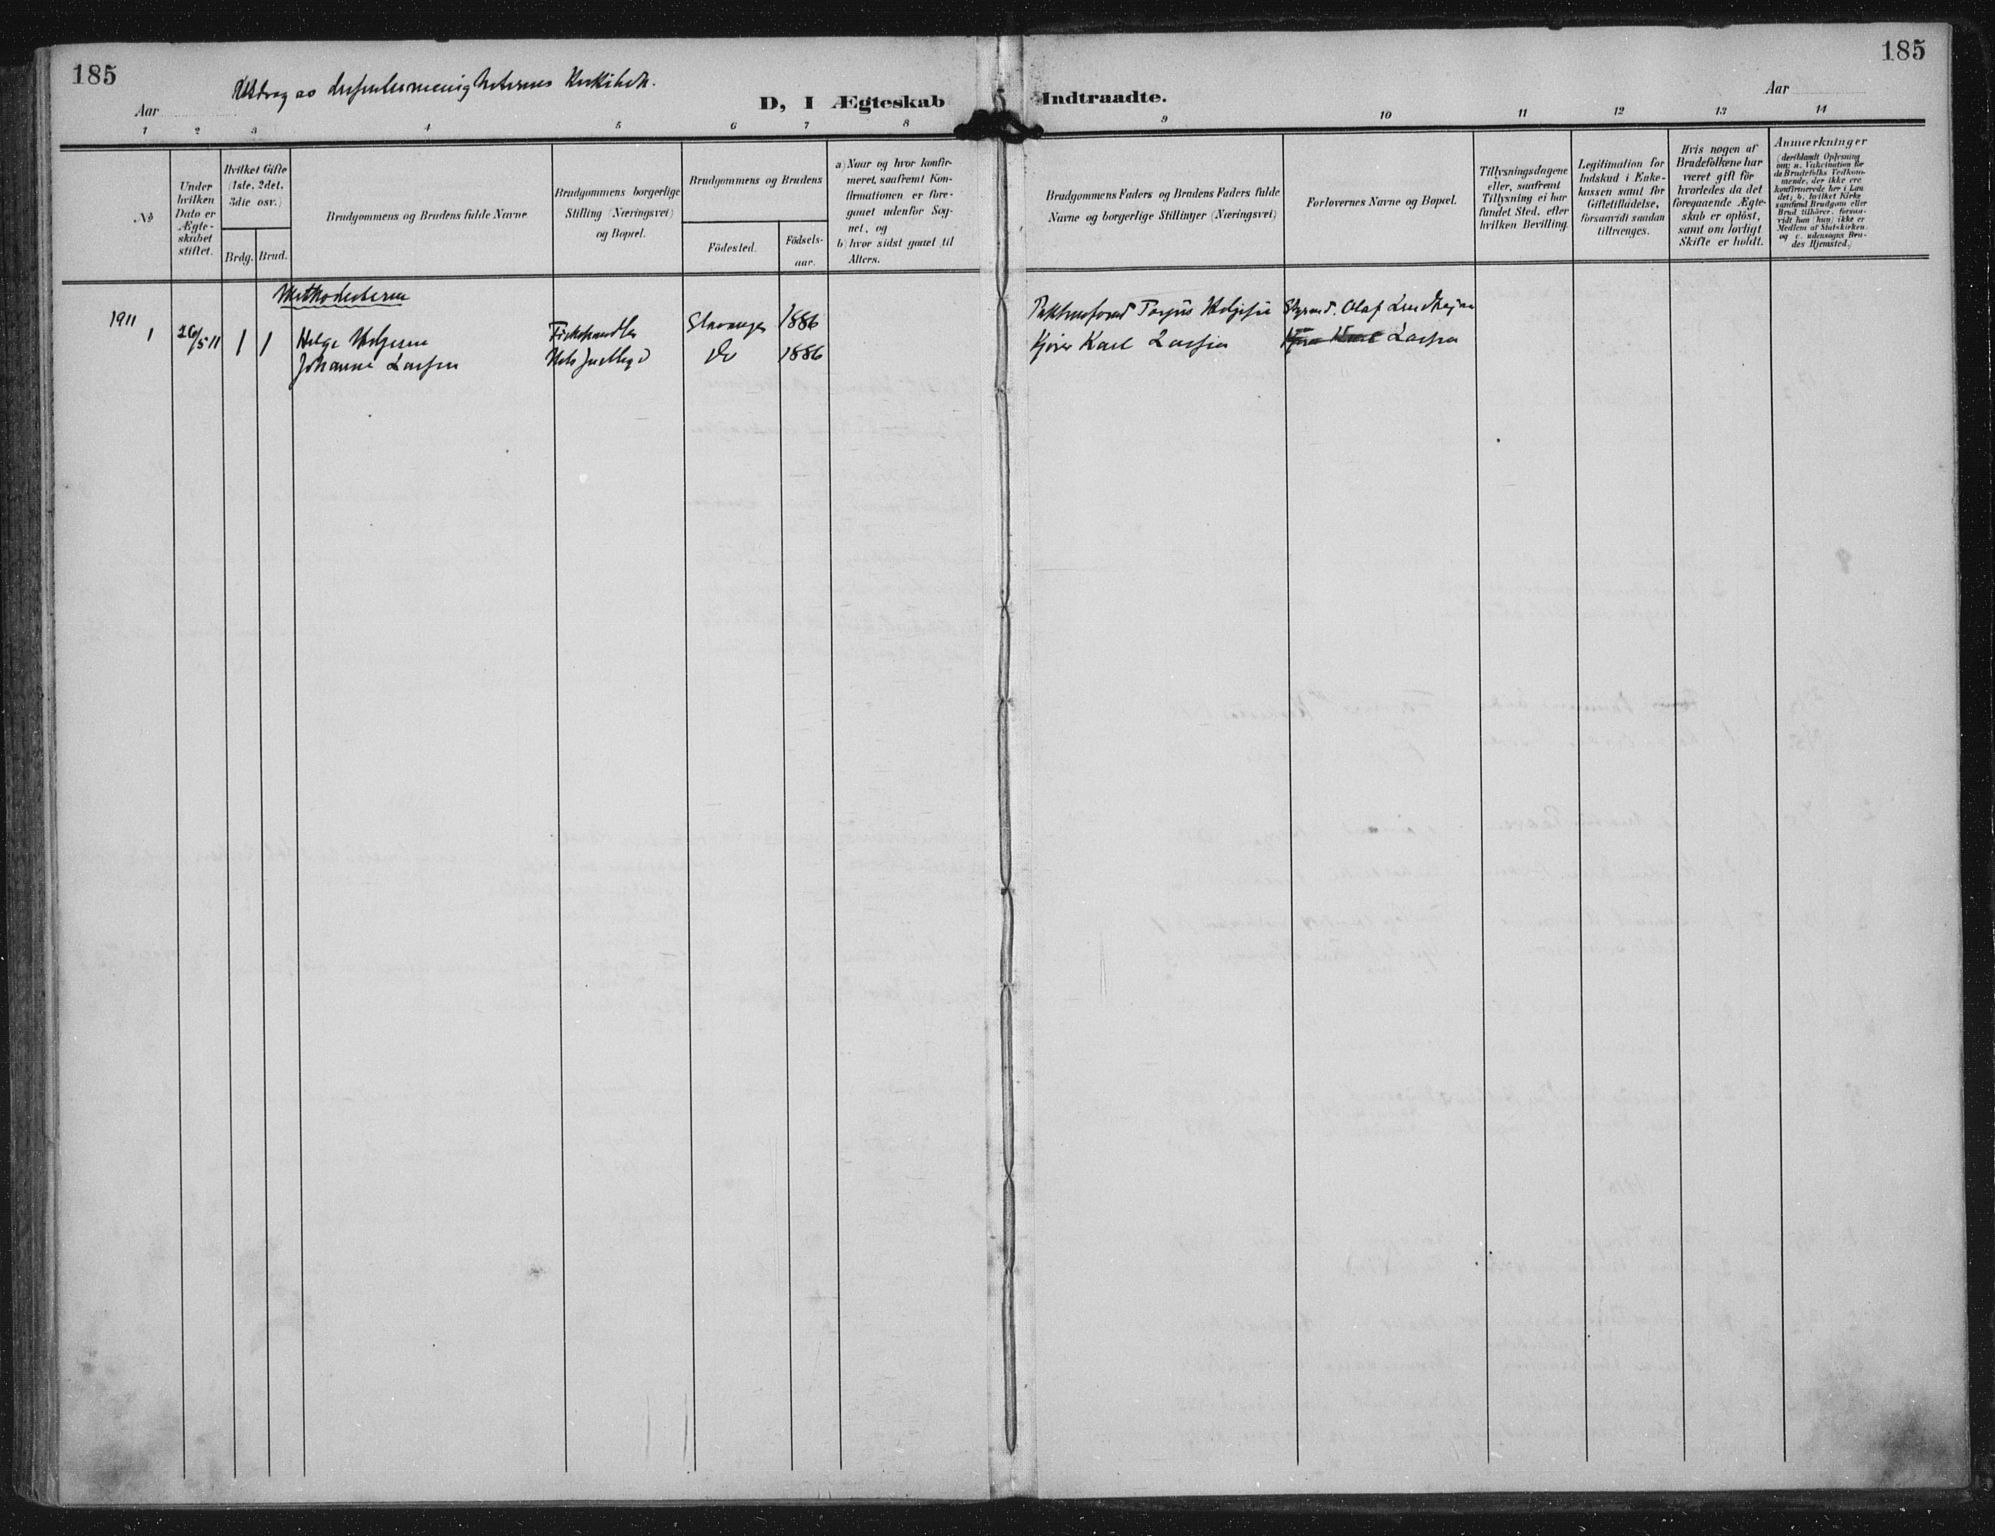 185
185
Utdrag av dissentermenigheternes Kirkebok.
Aar
D, I Ægteskab Indtraadte.
Aar
1 2 3 4 5 6 7 8 9 10 11 12 13 14
No
Under
hvilken
Dato er
Ægte-
skabet
stiftet.
Hvilket Gifte
(1ste, 2det,
3die osv.)
Brdg.
Brud.
Brudgommens og Brudens fulde Navne
Brudgommens borgerlige
Stilling (Næringsvei)
og Bopæl.
Brudgommens og Brudens
Födested.
Födsels-
aar.
a) Naar og hvor konfir-
meret, saafremt Kon-
firmationen er fore-
gaaet udenfor Sog-
net, og
b) hvor sidst gaaet til
Alters.
Brudgommens Faders og Brudens Faders fulde
Navne og borgerlige Stillinger (Næringsvei)
Forlovernes Navne og Bopæl.
Tillysningsdagene
eller, saafremt
Tillysning ei har
fundet Sted, efter
hvilken Bevilling.
Legitimation for
Indskud i Enke-
kassen samt for
Giftetilladelse,
forsaavidt saadan
tiltrænges.
Hvis nogen af
Brudefolkene har
været gift för
hvorledes da det
foregaaende Ægte-
skab er oplöst,
samt om lovligt
Skifte er holdt.
Anmærkninger
(deriblandt Oplysning
om: a. Vakcination Re-
de Brudefolks Vedkom-
mende, der ikke ere
konfirmerede her i Lan
det; b. hvilket Kirke
samfund Brudgom eller
Brud tilhörer, forsaa-
vidt han (hun) ikke er
Medlem af Statskirken,
og c. udensogns Bru-
des Hjemsted.)
Methodisterne
1911
1 26/5 11 1 1 Helge Helgesen Fiskehandler Stavanger 1886 Torjus Helgesen Olaf
Johanne Larsen Do 1886 Kjører Karl Larsen Larsen